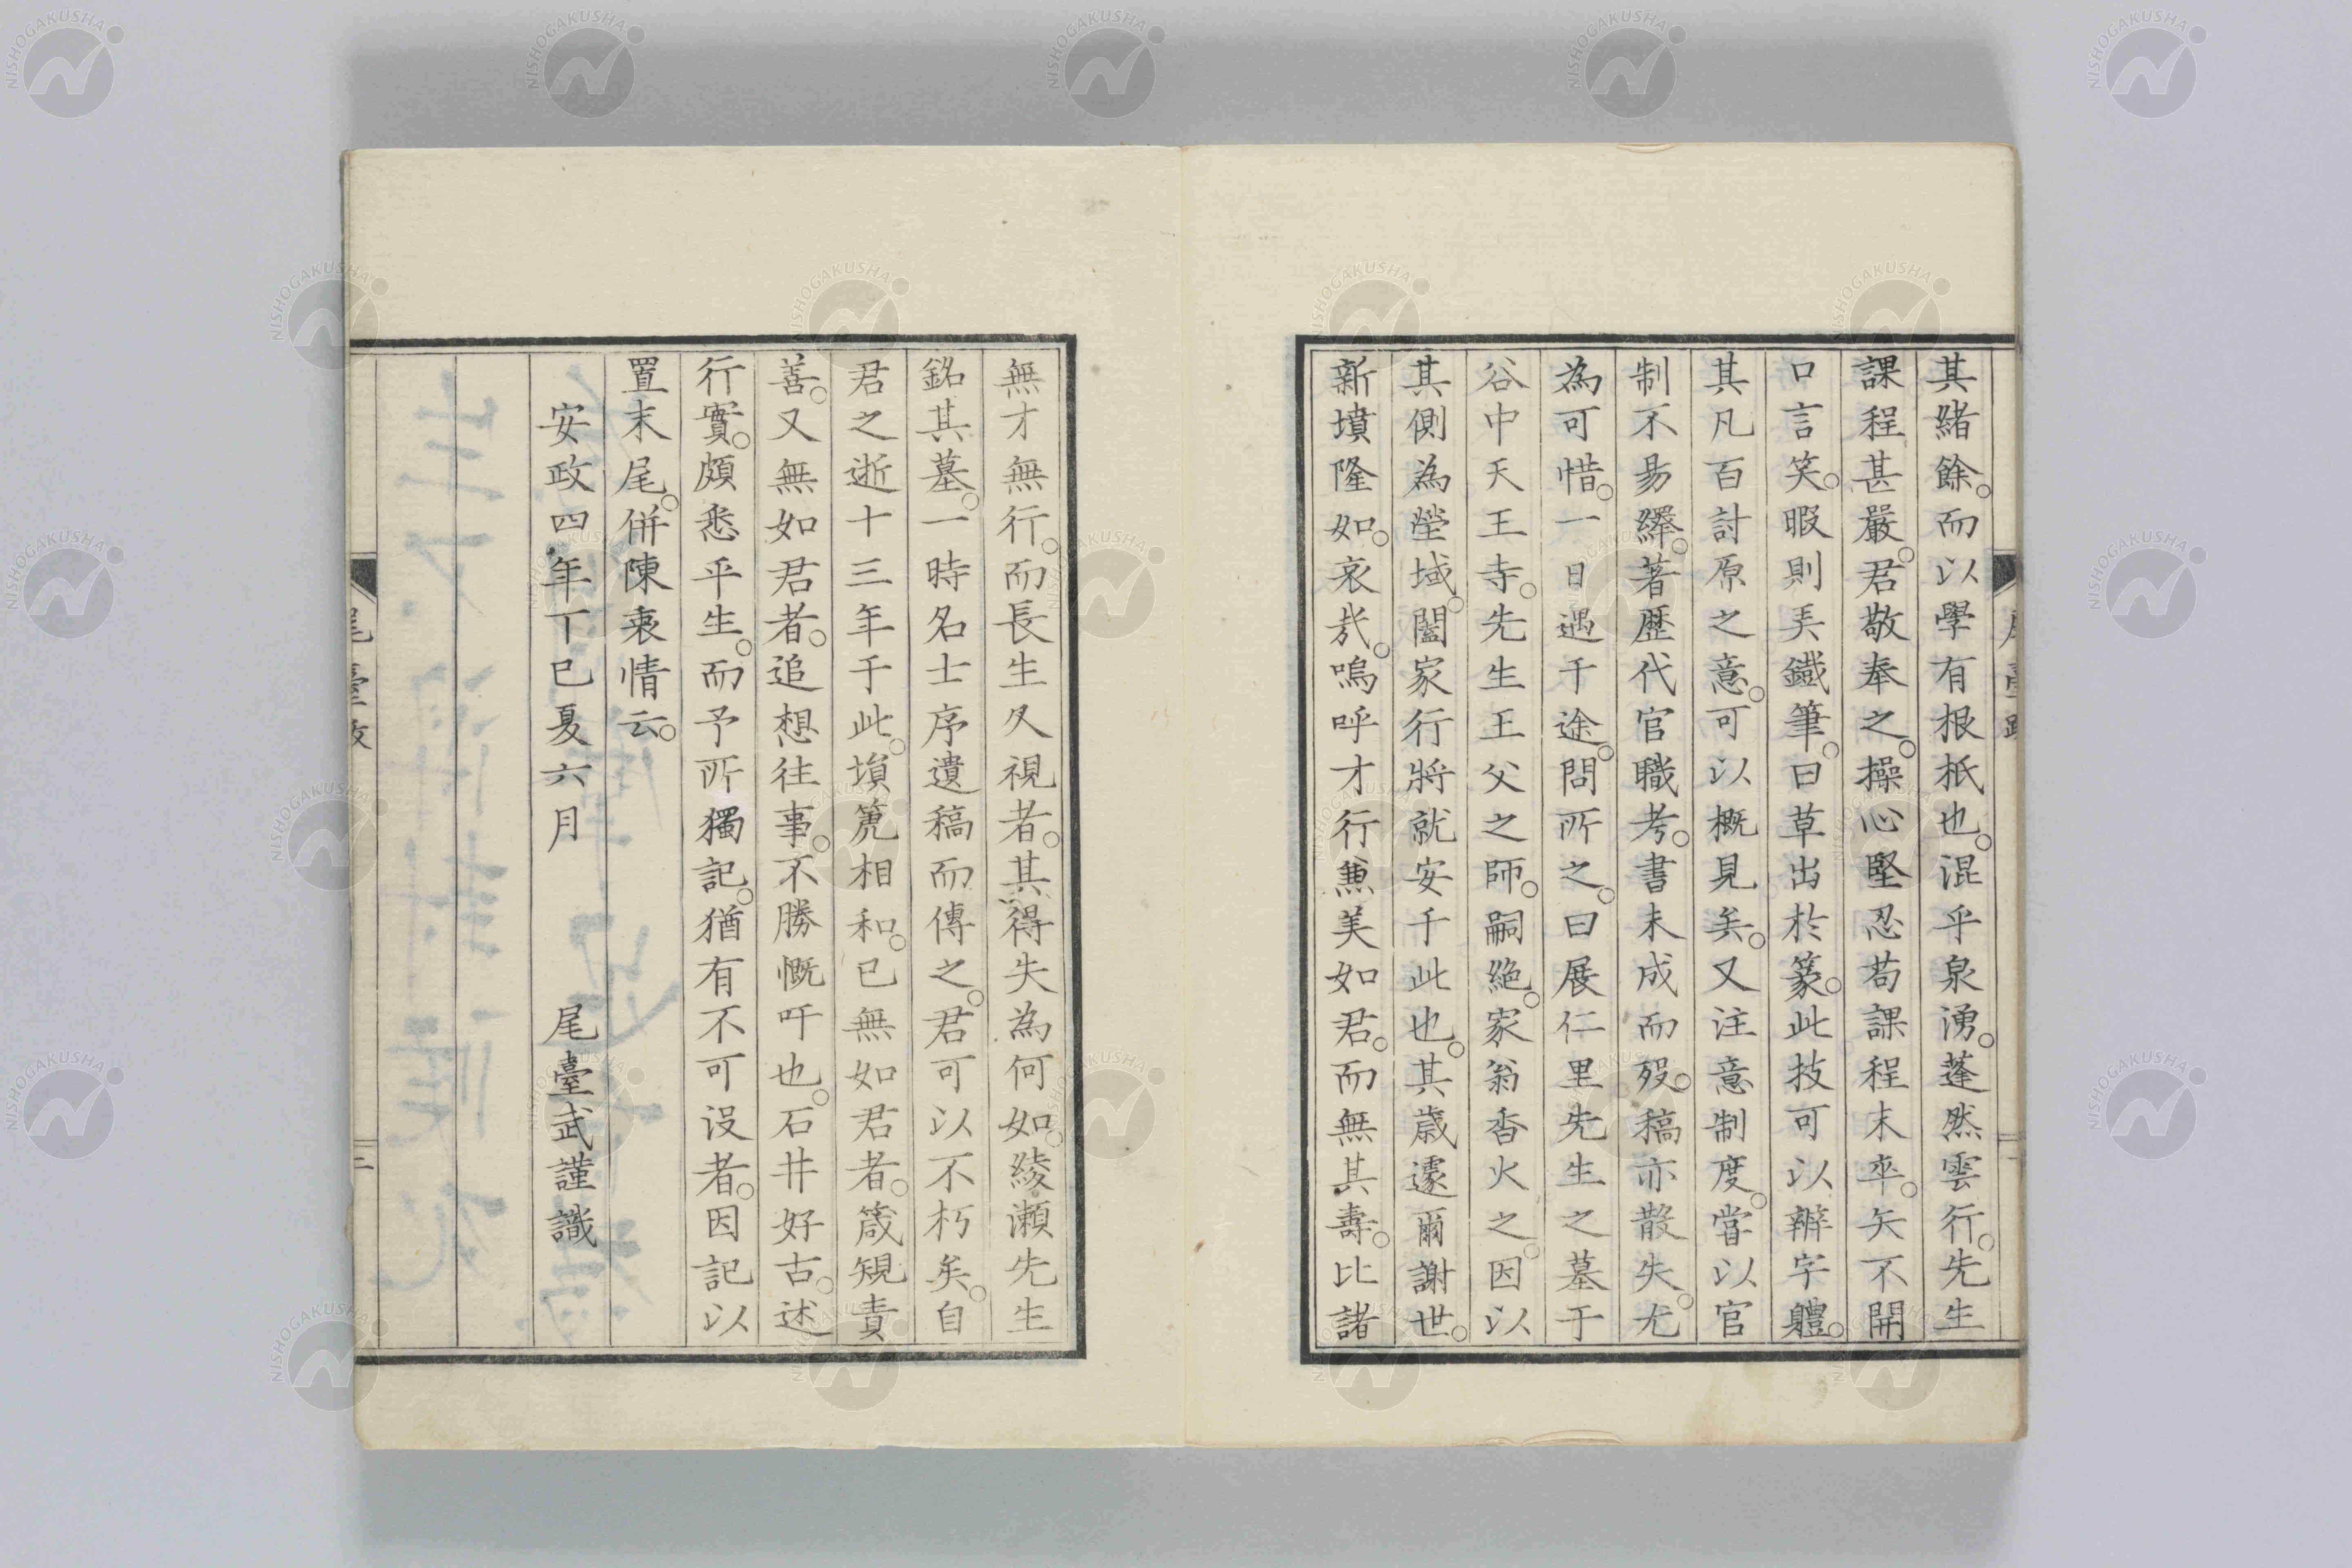 其緒餘。而以學有根柢也。混乎泉湧。蓬然雲行。先生
課程甚嚴。君敬奉之。操心堅忍苟課程未卒。矢不開
口言笑。暇則弄鐵筆。曰草出於篆。此技可以辨字軆。
其凡百討原之意。可以概見矣。又注意制度。嘗以官
制不易繹。著歷代官職考。書未成而歿。稿亦散失。尤
為可惜。一日遇于途。問所之。曰展仁里先生之墓于
谷中天王寺。先生王父之師。嗣絕。家翁香火之。因以
其側為塋域。闔家行將就安于此也。其歲遽爾謝世。
新墳隆如。哀哉。嗚呼才行兼美如君。而無其壽。比諸
無才無行。而長生久視者。其得失為何如。綾瀨先生
銘其墓。一時名士序遺稿而傳之。君可以不朽矣。自
君之逝十三年于此。塤篪相和。已無如君者。箴規責
善。又無如君者。追想往事。不勝慨吁也。石井好古。述
行實。頗悉乎生。而予所獨記。猶有不可沒者。因記以
置末尾。併陳衷情云。
安政四年丁巳夏六月 尾臺武謹識
尾臺跋
二
NISHOGAKUSHA